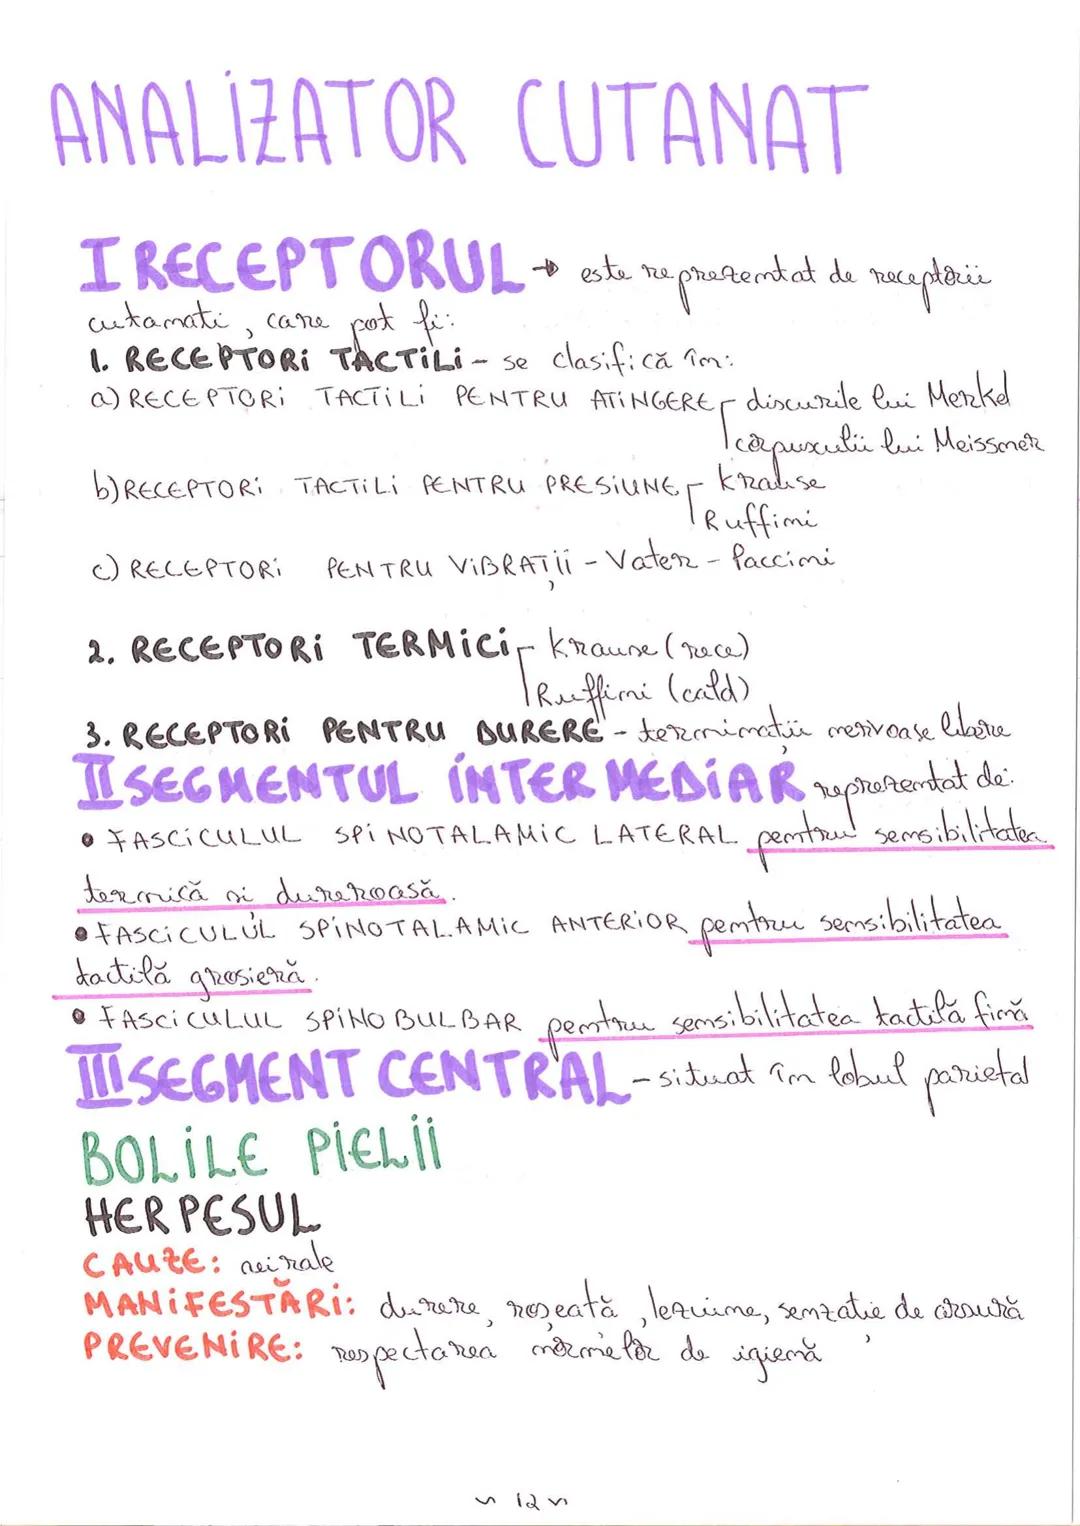 ANALIZATOR CUTANAT
I RECEPTORUL → este reprezentat de receptorii
cutanați, care pot fi:
1. RECEPTORI TACTILI - se clasifică în:
a) RECEPTORI TACTILI PENTRU ATINGERE discurile lui Merkel
corpusculii lui Meissner
b) RECEPTORI TACTILI PENTRU PRESIUNE Krause
Ruffini
c) RECEPTORI PENTRU VIBRAȚII - Vater - Paccini
2. RECEPTORI TERMICI Krause (rece)
Ruffini (cald)
3. RECEPTORI PENTRU DURERE - terminații nervoase libere
II SEGMENTUL INTERMEDIAR reprezentat de:
• FASCICULUL SPINOTALAMIC LATERAL pentru sensibilitatea
termică și dureroasă.
• FASCICULUL SPINOTALAMIC ANTERIOR pentru sensibilitatea
tactilă grosieră.
• FASCICULUL SPINOBULBAR pentru sensibilitatea tactilă fină
III SEGMENT CENTRAL - situat în lobul parietal
BOLILE PIELII
HERPESUL
CAUZE: virale
MANIFESTĂRI: durere, roșeată, leziune, senzație de arsură
PREVENIRE: respectarea normelor de igienă
~ 12 ~